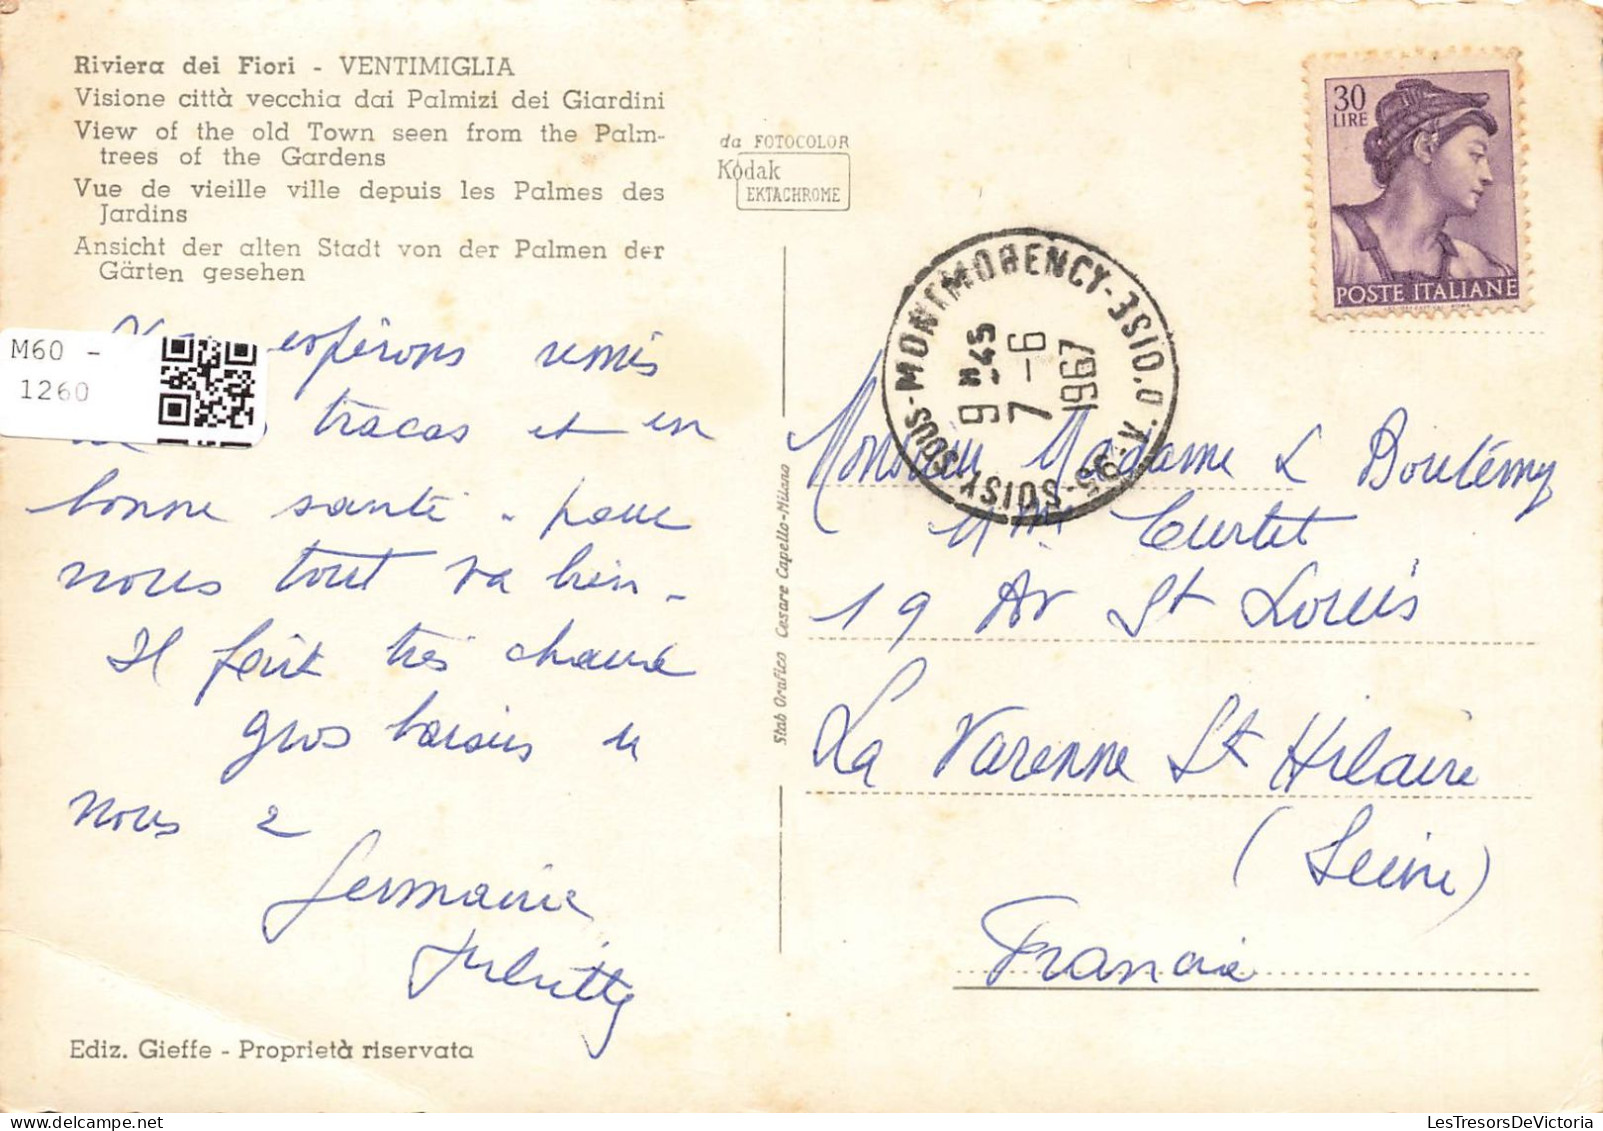 Riviera dei Fiori - VENTIMIGLIA
Visione città vecchia dai Palmizi dei Giardini
View of the old Town seen from the Palm-
trees of the Gardens
Vue de vieille ville depuis les Palmes des
Jardins
Ansicht der alten Stadt von der Palmen der
Gärten gesehen
M60 -
1260
espérons remis
tracas et en
bonne santé - pour
nous tout va bien -
Il fait très chaud
gros baisers de
nous 2
Germaine
Juliette
Ediz. Gieffe - Proprietà riservata
da FOTOCOLOR
Kodak
EKTACHROME
Stab Grafico Cesare Capello-Milano
30
LIRE
POSTE ITALIANE
SOISY-SOUS-MONTMORENCY-
95
9 H 45
7 - 6
1967
Monsieur Madame & Boutémy
19 Av St Louis
La Varenne St Hilaire
(Seine)
France
LesTresorsDeVictoria.com